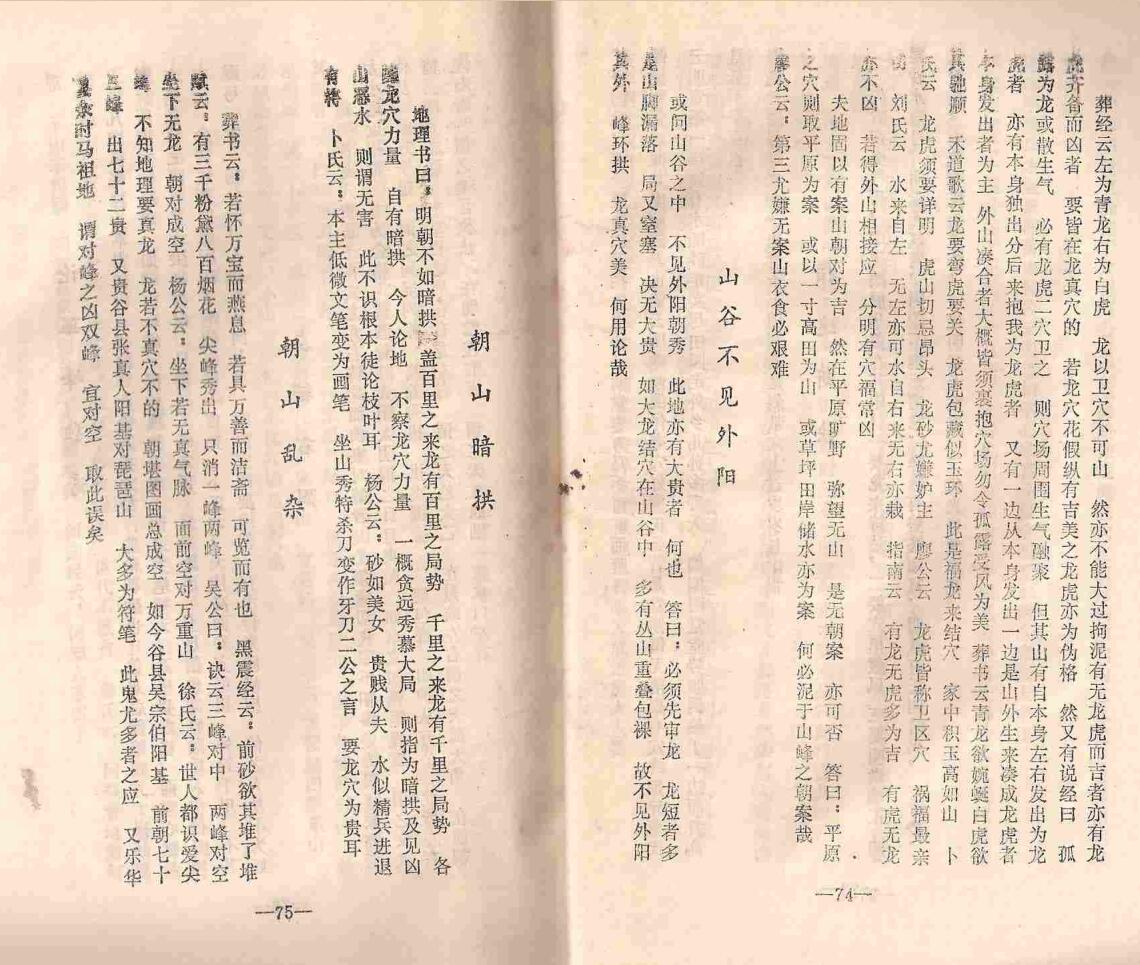 葬经云左为青龙右为白虎 龙以卫穴不可山 然亦不能大过拘泥有无龙虎而吉者亦有龙
虎齐备而凶者 要皆在龙真穴的 若龙穴花假纵有吉美之龙虎亦为伪格 然又有说经曰 孤
露为龙或散生气 必有龙虎二穴卫之 则穴场周围生气融聚 但其山有自本身左右发出为龙
虎者 亦有本身独出分后来抱我为龙虎者 又有一边从本身发出一边是山外生来凑成龙虎者
本身发出者为主 外山凑合者大概皆须裹抱穴场勿令孤露受风为美 葬书云青龙欲婉蜒白虎欲
其驰顺 禾道歌云龙要弯虎要关 龙虎包藏似玉环 此是福龙来结穴 家中积玉高如山 卜
氏云 龙虎须要详明 虎山切忌昂头 龙砂尤嫌妒主 廖公云 龙虎皆称卫区穴 祸福最亲
刘氏云 水来自左 无左亦可水自右来无右亦栽 指南云 有龙无虎多为吉 有虎无龙
亦不凶 若得外山相接应 分明有穴福常凶
夫地固以有案山朝对为吉 然在平原旷野 弥望无山 是无朝案 亦可否 答曰：平原
之穴则取平原为案 或以一寸高田为山 或草坪田岸储水亦为案 何必泥于山峰之朝案哉
廖公云：第三尤嫌无案山衣食必艰难
山谷不见外阳
或问山谷之中 不见外阳朝秀 此地亦有大贵者 何也 答曰：必须先审龙 龙短者多
是山脚漏落 局又窒塞 决无大贵 如大龙结穴在山谷中 多有丛山重叠包裸 故不见外阳
其外 峰环拱 龙真穴美 何用论哉
—74—
朝山暗拱
地理书曰：明朝不如暗拱 盖百里之来龙有百里之局势 千里之来龙有千里之局势 各
随龙穴力量 自有暗拱 今人论地 不察龙穴力量 一概贪远秀慕大局 则指为暗拱及见凶
山恶水 则谓无害 此不识根本徒论枝叶耳 杨公云：砂如美女 贵贱从夫 水似精兵进退
有将 卜氏云：本主低微文笔变为画笔 坐山秀特杀刀变作牙刀二公之言 要龙穴为贵耳
朝山乱杂
葬书云：若怀万宝而燕息 若具万善而洁斋 可览而有也 黑震经云：前砂欲其堆了堆
赋云：有三千粉黛八百烟花 尖峰秀出 只消一峰两峰 吴公曰：诀云三峰对中 两峰对空
坐下无龙 朝对成空 杨公云：坐下若无真气脉 面前空对万重山 徐氏云：世人都识爱尖
峰 不知地理要真龙 龙若不真穴不的 朝堪图画总成空 如今谷县吴宗伯阳基 前朝七十
三峰 出七十二贵 又贵谷县张真人阳基对琵琶山 大多为符笔 此鬼尤多者之应 又乐华
时马祖地 谓对峰之凶双峰 宜对空 取此误矣
—75—